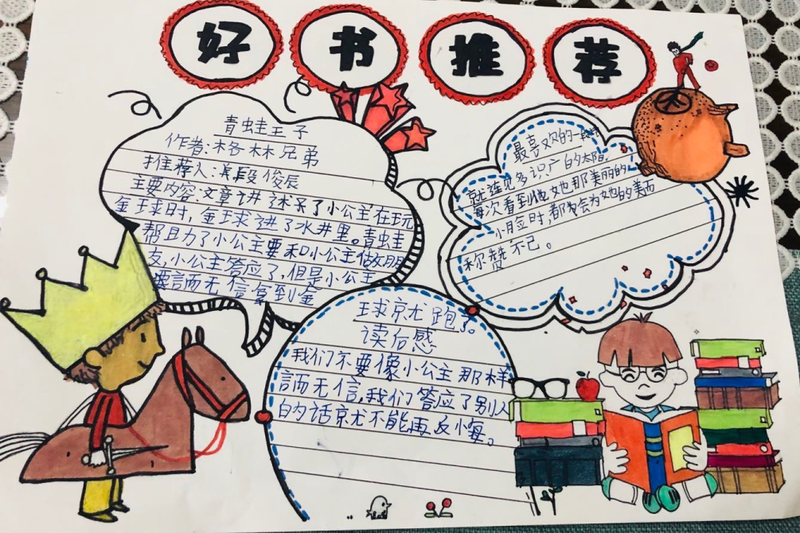 好书推荐
青蛙王子
作者:格林兄弟
推荐人:段俊辰
主要内容:文章讲了小公主在玩
金球时,金球进了水井里。青蛙
帮助了小公主要和小公主做朋
友,小公主答应了,但是小公主
言而无信拿到金
球就跑了。
读后感
我们不要像小公主那样
言而无信,我们答应了别人
的话就不能再反悔。
最喜欢的一段
就连见多识广的太阳
每次看到她那美丽的
小脸时,都会为她的美而
称赞不已。